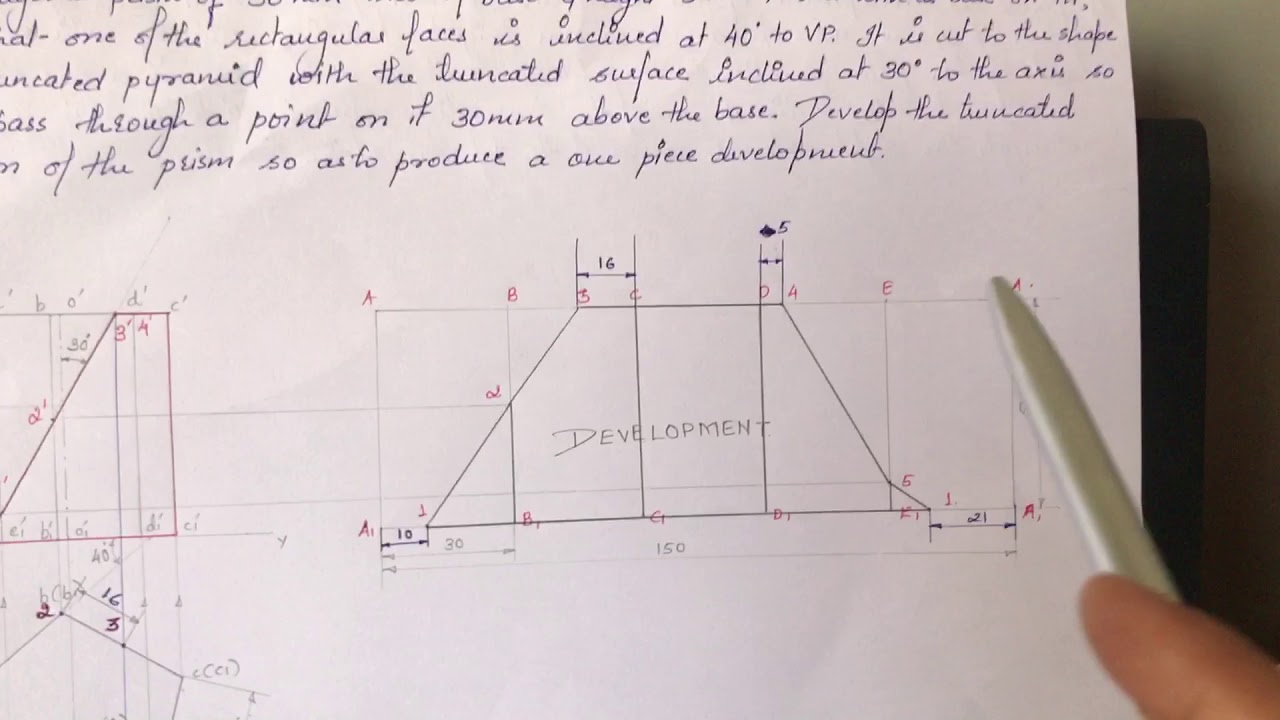 prism of 30mm
one of the rectangular faces is inclined at 40° to VP. It is cut to the shape
pyramid with the truncated surface inclined at 30° to the axis so
pass through a point on it 30mm above the base. Develop the truncated
of the prism so as to produce a one piece development.
5
16
b' o' d' c'
A B 3 C D 4 E A
3' 4'
30°
2'
2
DEVELOPMENT
5
1 1
e1' b1' o1' d1' c1' Y
A1 B1 C1 D1 E1 A1
10 21
30 150
40°
b(b1) 16
2
3
c(c1)